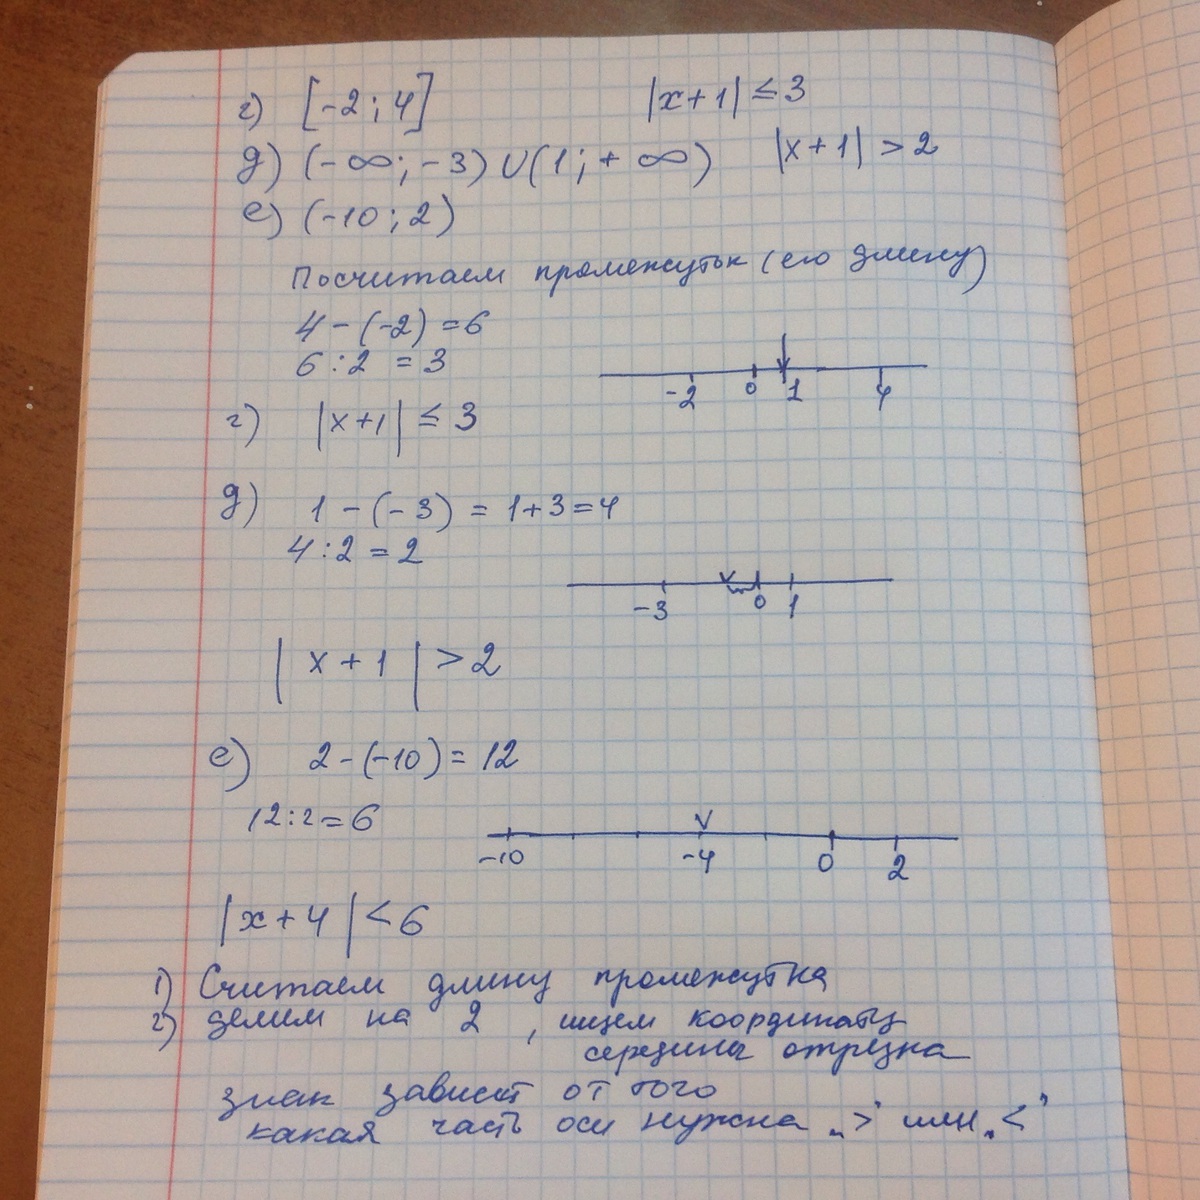 г) [-2; 4] |x+1| ≤ 3
д) (-∞; -3) ∪ (1; +∞) |x+1| > 2
е) (-10; 2)
Посчитаем промежуток (его длину)
4 - (-2) = 6
6 : 2 = 3
-2 0 1 4
г) |x+1| ≤ 3
д) 1 - (-3) = 1+3=4
4 : 2 = 2
-3 0 1
|x+1| > 2
е) 2 - (-10) = 12
12 : 2 = 6
-10 -4 0 2
|x+4| < 6
1) Считаем длину промежутка
2) делим на 2, ищем координату
середины отрезка
знак зависит от того
какая часть оси нужна „>” или „<”